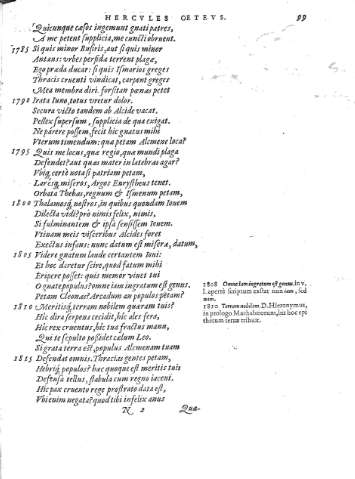 HERCVLES OETEVS. 99
Quicunque casus ingemunt gnati patres,
A me petent supplicia, me cuncti obruent.
1785 Si quis minor Busiris, aut si quis minor
Antæus urbes perfida terrent plagæ,
Ego præda ducar: si quis Ismarios greges
Thracis cruenti vindicat, carpent greges
Mea membra diri. forsitan pœnas petet
1790 Irata Iuno, totus vretur dolor.
Secura victo tandem ab Alcide vacat.
Pellex supersum, supplicia de qua exigat.
Ne parere possem, fecit hic gnatus mihi
Vterum timendum: qua petam Alcmene loca?
1795 Quis me locus, quæ regio, quæ mundi plaga
Defendet? aut quas mater in latebras agar?
Vbiq, certè nota si patriam petam,
Laresq, miseros, Argos Eurystheus tenet.
Orbata Thebas, regnum & Ismenum petam,
1800 Thalamosq, nostros, in quibus quondam Iouem
Dilecta vidi? prò nimis felix, nimis,
Si fulminantem & ipsa sensissem Iouem.
Vtinam meis visceribus Alcides foret
Exectus infans: nunc datum est misera, datum,
1805 Videre gnatum laude certantem Ioui:
Et hoc daretur scire, quod fatum mihi
Eripere posset: quis memor viuet tui
O gnate populus? omne iam ingratum est genus.
Petam Cleonas? Arcadum an populos petam?
1810 Meritisq, terram nobilem quæram tuis?
Hic dira serpens cecidit, hîc ales fera,
Hic rex cruentus, hîc tua fractus manu,
Qui te sepulto possidet cælum Leo.
Si grata terra est, populus Alcmenam tuam
1815 Defendat omnis. Thracias gentes petam,
Hebriq, populos? hæc quoque est meritis tuis
Defensa tellus, stabula cum regno iacent.
Hîc pax cruento rege prostrato data est,
Vbi enim negata? quod tibi infelix anus
N 2 Quæ-
1808 Omne iam ingratum est genus.
1810 Terram nobilem. D. Hieronymus,